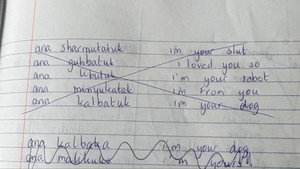 ana sharmutatuk i'm your slut
ana guhbatuk i loved you so
ana ubutuk i'm your robot
ana minyukatak im from you
ana kalbatuk im your dog
ana kalbaka i'm your dog
ana malikuka i'm your